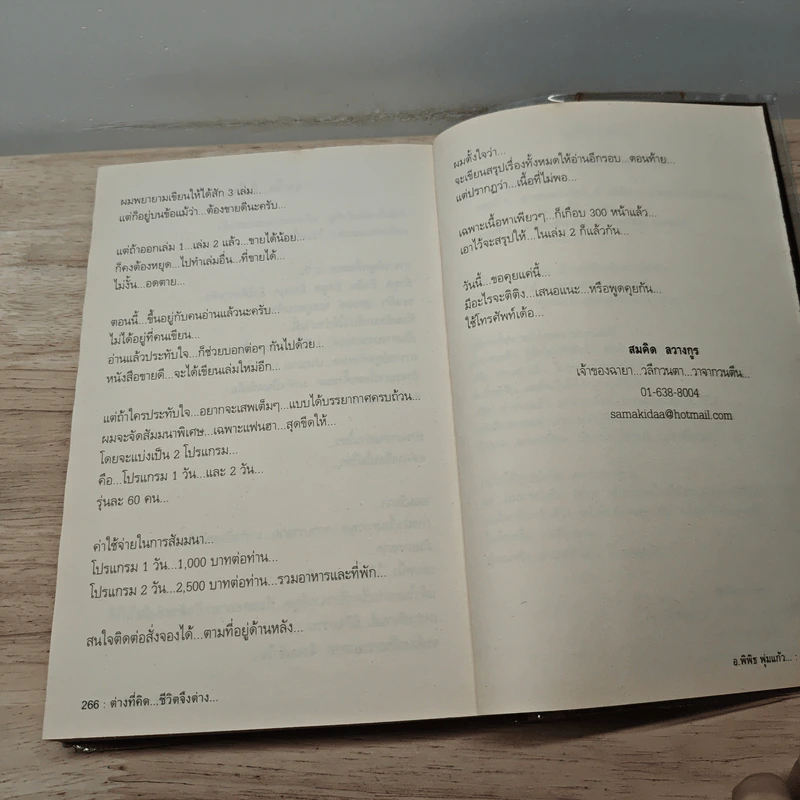 ผมพยายามเขียนให้ได้สัก 3 เล่ม...
แต่ก็อยู่บนข้อแม้ว่า...ต้องขายดีนะครับ...
แต่ถ้าออกเล่ม 1...เล่ม 2 แล้ว...ขายได้น้อย...
ก็คงต้องหยุด...ไปทำเล่มอื่น...ที่ขายได้...
ไม่งั้น...อดตาย...
ตอนนี้...ขึ้นอยู่กับคนอ่านแล้วนะครับ...
ไม่ได้อยู่ที่คนเขียน...
อ่านแล้วประทับใจ...ก็ช่วยบอกต่อๆ กันไปด้วย...
หนังสือขายดี...จะได้เขียนเล่มใหม่อีก...
แต่ถ้าใครประทับใจ...อยากจะเสพเต็มๆ...แบบได้บรรยากาศครบถ้วน...
ผมจะจัดสัมมนาพิเศษ...เฉพาะแฟนฮา...สุดขีดให้...
โดยจะแบ่งเป็น 2 โปรแกรม...
คือ...โปรแกรม 1 วัน...และ 2 วัน...
รุ่นละ 60 คน...
ค่าใช้จ่ายในการสัมมนา...
โปรแกรม 1 วัน...1,000 บาทต่อท่าน...
โปรแกรม 2 วัน...2,500 บาทต่อท่าน...รวมอาหารและที่พัก...
สนใจติดต่อสั่งจองได้...ตามที่อยู่ด้านหลัง...
266 : ต่างที่คิด...ชีวิตจึงต่าง...
ผมตั้งใจว่า...
จะเขียนสรุปเรื่องทั้งหมดให้อ่านอีกรอบ...ตอนท้าย...
แต่ปรากฏว่า...เนื้อที่ไม่พอ...
เฉพาะเนื้อหาเพียวๆ...ก็เกือบ 300 หน้าแล้ว...
เอาไว้จะสรุปให้...ในเล่ม 2 ก็แล้วกัน...
วันนี้...ขอคุยแค่นี้...
มีอะไรจะติติง...เสนอแนะ...หรือพูดคุยกัน...
ใช้โทรศัพท์เด้อ...
สมคิด ลวางกูร
เจ้าของฉายา...วลีกวนตา...วาจากวนตีน...
01-638-8004
samakidaa@hotmail.com
อ.พิพิช พุ่มแก้ว... :